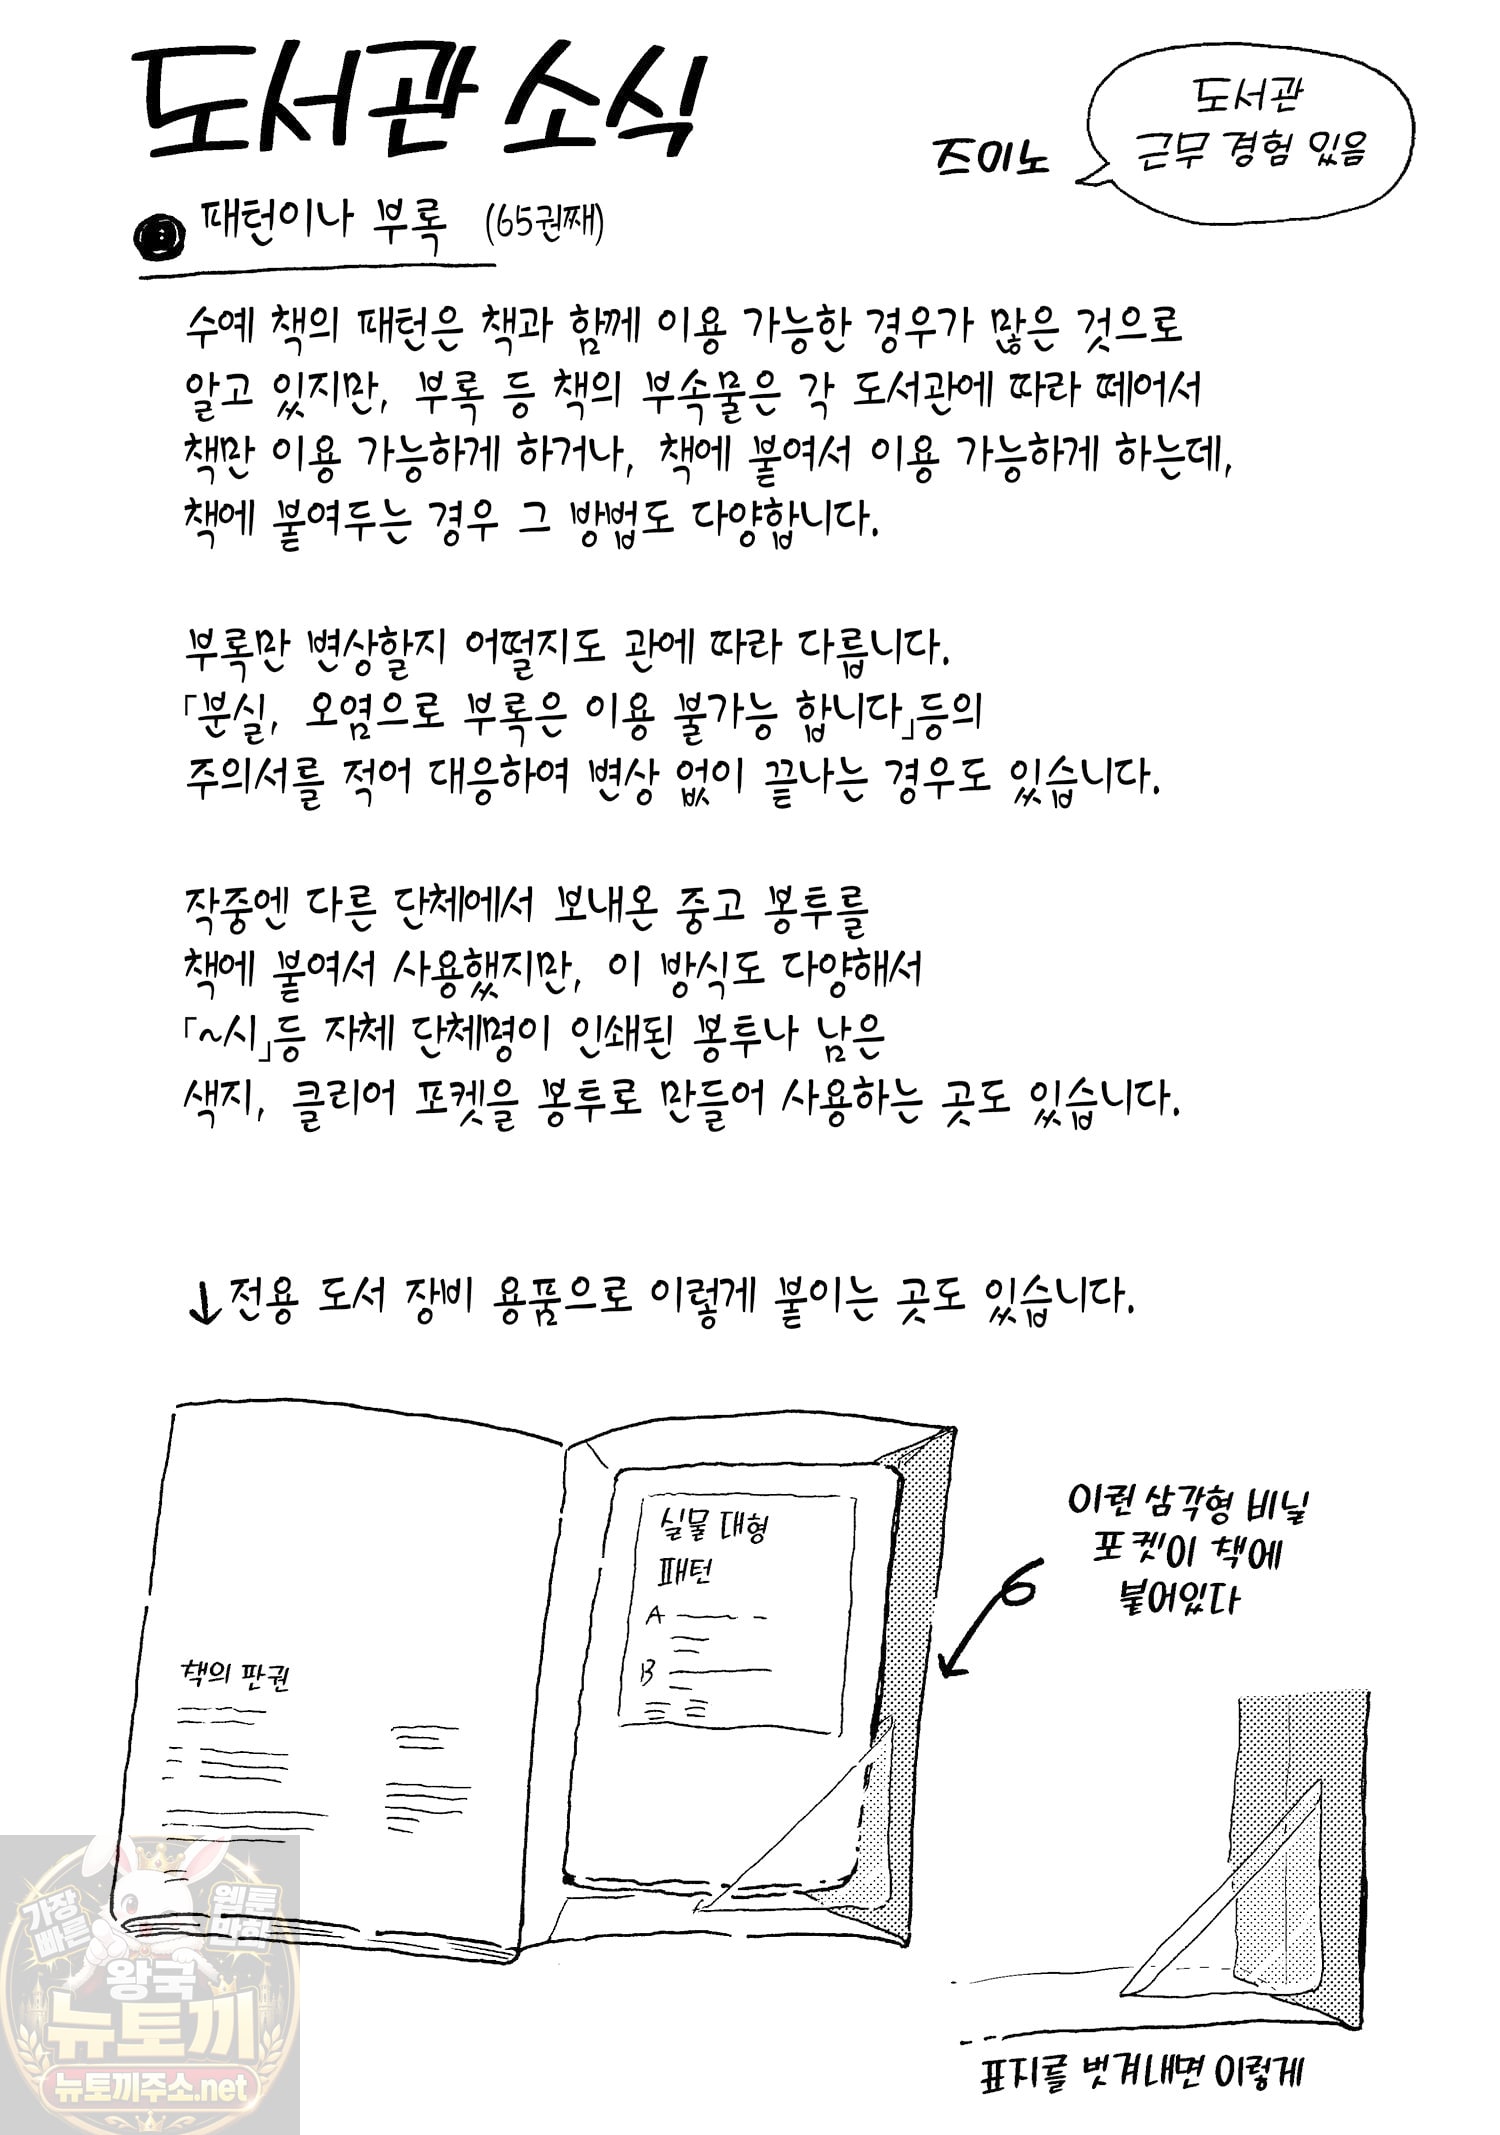 도서관 소식
즈미노
도서관
근무 경험 있음
패턴이나 부록 (65권째)
수예 책의 패턴은 책과 함께 이용 가능한 경우가 많은 것으로
알고 있지만, 부록 등 책의 부속물은 각 도서관에 따라 떼어서
책만 이용 가능하게 하거나, 책에 붙여서 이용 가능하게 하는데,
책에 붙여두는 경우 그 방법도 다양합니다.
부록만 변상할지 어떨지도 관에 따라 다릅니다.
「분실, 오염으로 부록은 이용 불가능 합니다」등의
주의서를 적어 대응하여 변상 없이 끝나는 경우도 있습니다.
작중엔 다른 단체에서 보내온 중고 봉투를
책에 붙여서 사용했지만, 이 방식도 다양해서
「~시」등 자체 단체명이 인쇄된 봉투나 남은
색지, 클리어 포켓을 봉투로 만들어 사용하는 곳도 있습니다.
↓전용 도서 장비 용품으로 이렇게 붙이는 곳도 있습니다.
실물 대형
패턴
A
B
책의 판권
이런 삼각형 비닐
포켓이 책에
붙어있다
표지를 벗겨내면 이렇게
가장
빠른
웹툰
만화
왕국
뉴토끼
뉴토끼주소.net